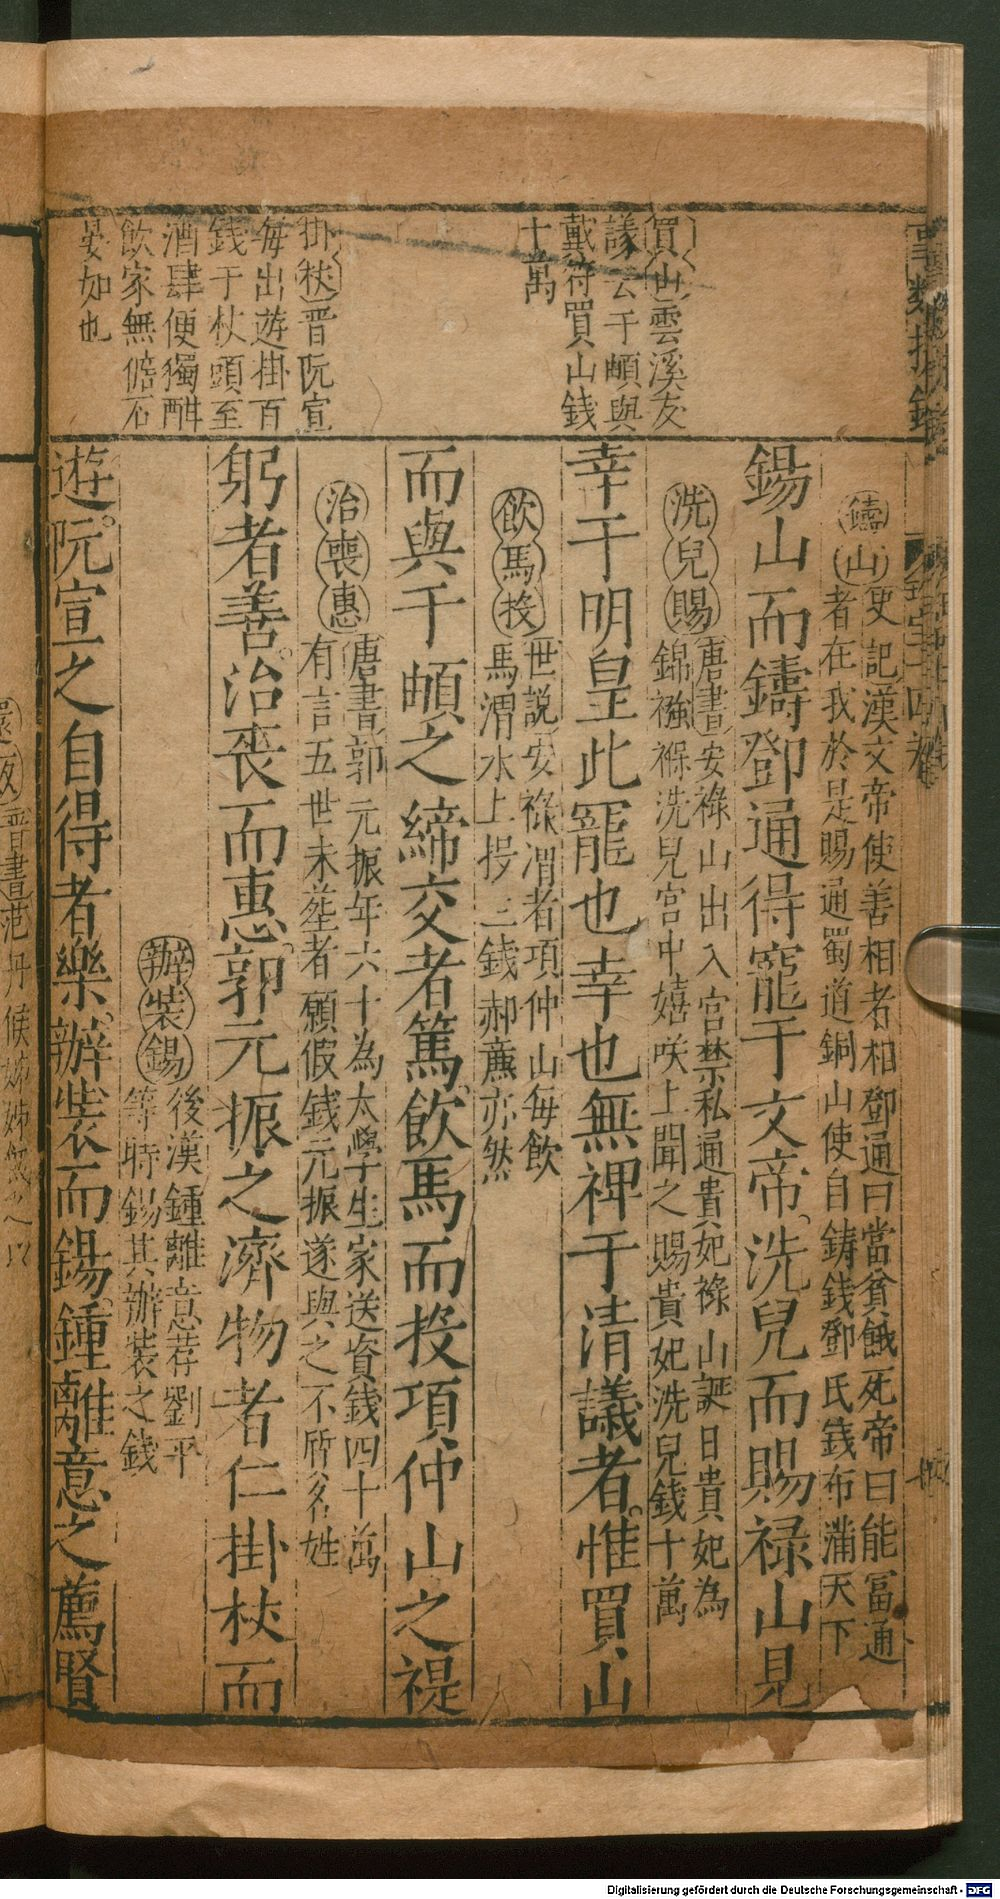 買山雲溪友
議云于頔與
戴符買山錢
十萬
掛杖晋阮宣
每出遊掛百
錢于杖頭至
酒肆便獨酣
飲家無儋石
晏如也
鑄山
史記漢文帝使善相者相鄧通曰當貧餓死帝曰能冨通
者在我於是賜通蜀道銅山使自鑄錢鄧氏錢布滿天下
錫山而鑄鄧通得寵于文帝洗兒而賜禄山見
洗兒賜
唐書安禄山出入宫禁私通貴妃禄山誕日貴妃為
錦襁褓洗兒宫中嬉咲上聞之賜貴妃洗兒錢十萬
幸于明皇此寵也幸也無禆于清議者惟買山
飲馬投
世説安禄渭者項仲山每飲
馬渭水上投三錢郝亷亦然
而與于頔之締交者篤飲馬而投項仲山之禔
治喪惠
唐書郭元振年六十為太學生家送資錢四十萬
有言五世未塟者願假錢元振遂與之不所名姓
躬者善治喪而惠郭元振之濟物者仁掛杖而
辦裝錫
後漢鍾離意荐劉平
等特錫其辦裝之錢
遊阮宣之自得者樂辦裝而錫鍾離意之薦賢
Digitalisierung gefördert durch die Deutsche Forschungsgemeinschaft - DFG